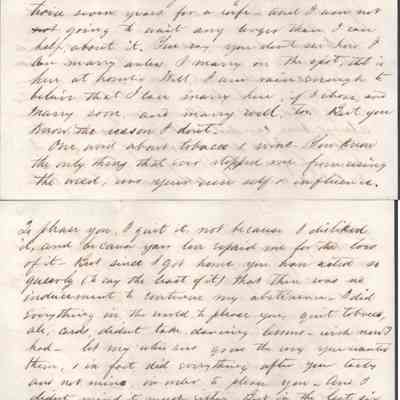 those seven years for a wife - and I am not
not going to wait any longer than I can
help, about it. You say you don't see how I
can marry unless I marry on the spot, that is
here at home. Well I am vain enough to
believe that I can marry here, if I chose, and
marry soon, and marry well, too. But you
know the reason I don't.
One word about tobacco & wine. You know
the only thing that ever stopped me from using
the weed, was your own self & influence.
To please you, I quit it, not because I disliked
it, and because your love repaid me for the loss
of it. But since I got home you have acted so
queerly (to say the least of it) that there was no
inducement to continue my abstinence. I did
everything in the world to please you, quit tobacco,
ale, cards, didn't take dancing lessons - wish now I
had - let my whiskers grow the way you wanted
them, & in fact did everything after your taste
and not mine, in order to please you - And I
didn't mind it much either. But in the last six